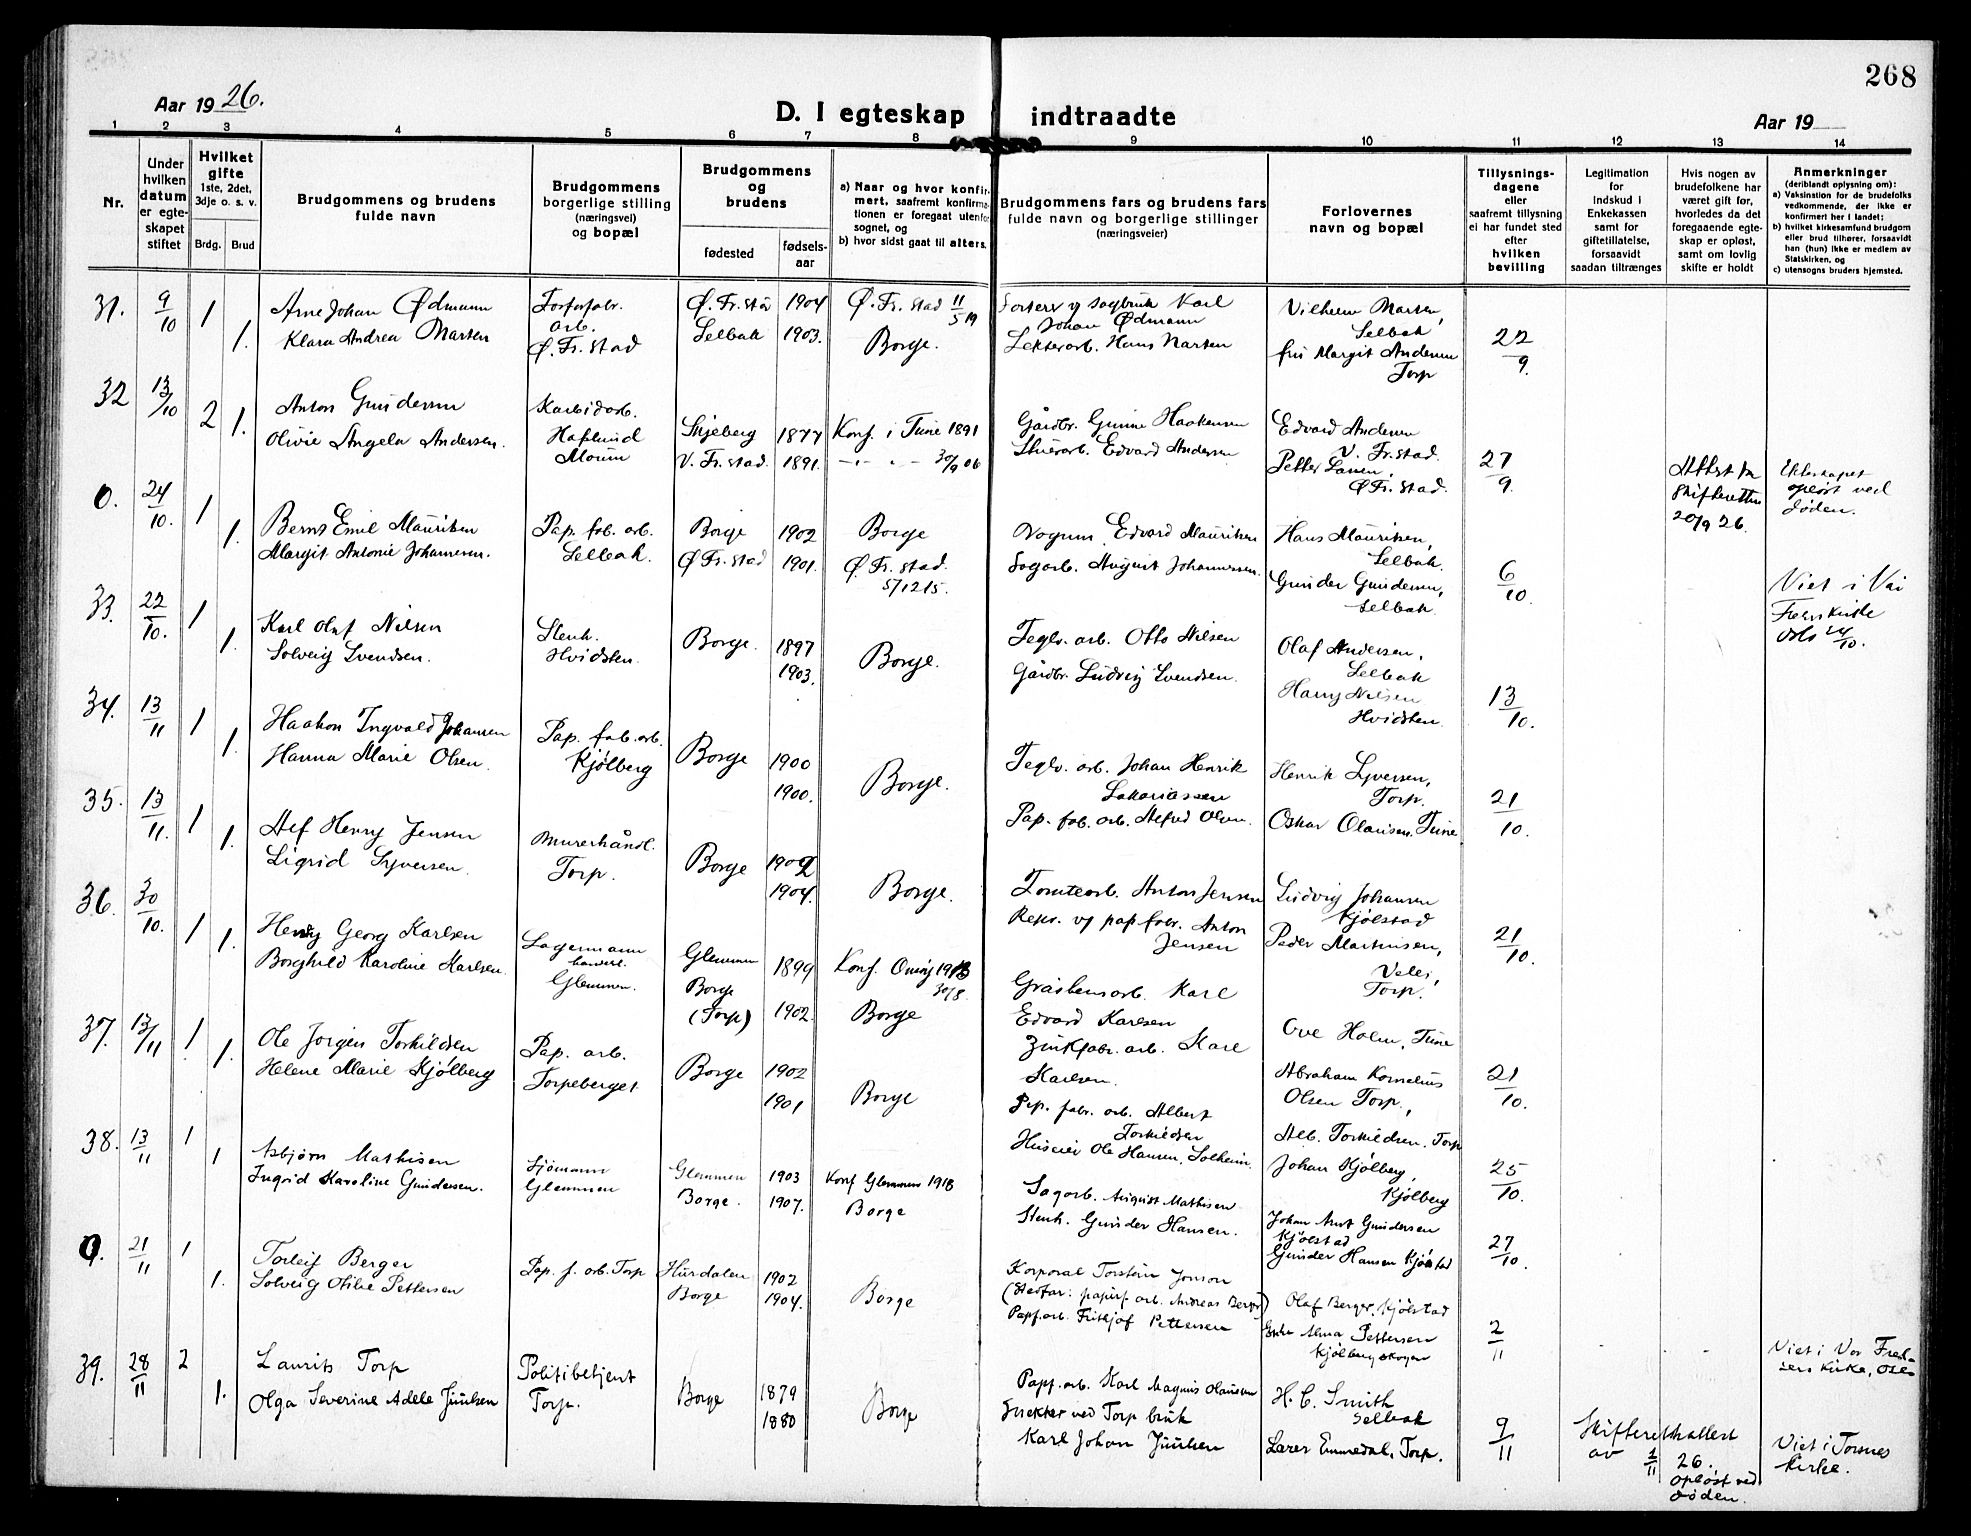 268
Aar 1926.
D. I egteskap indtraadte
Aar 19
1 2 3 4 5 6 7 8 9 10 11 12 13 14
Nr.
Under hvilken datum er egteskapet stiftet
Hvilket gifte 1ste, 2det, 3dje o. s. v.
Brdg. Brud
Brudgommens og brudens fulde navn
Brudgommens borgerlige stilling (næringsvei) og bopæl
Brudgommens og brudens
fødested
fødselsaar
a) Naar og hvor konfirmert, saafremt konfirmationen er foregaat utenfor sognet, og
b) hvor sidst gaat til alters.
Brudgommens fars og brudens fars fulde navn og borgerlige stillinger (næringsveier)
Forlovernes navn og bopæl
Tillysningsdagene eller saafremt tillysning ei har fundet sted efter hvilken bevilling
Legitimation for indskud i Enkekassen samt for giftetillatelse, forsaavidt saadan tiltrænges
Hvis nogen av brudefolkene har været gift før, hvorledes da det foregaaende egteskap er opløst, samt om lovlig skifte er holdt
Anmerkninger (deriblandt oplysning om):
a) Vaksination for de brudefolks vedkommende, der ikke er konfirmert her i landet;
b) hvilket kirkesamfund brudgom eller brud tilhører, forsaavidt han (hun) ikke er medlem av Statskirken, og
c) utensogns bruders hjemsted.
31. 9/10 1 Arne Johan Ødmann
1. Klara Andrea Marten
arb.
Ø. Fr. stad
Ø. Fr. stad 1904 Ø. Fr. stad 11/5 19
Selbak 1903. Borge.
Karl
Johan Ødmann
Hans Marten
Vilhelm Marten,
Selbak
Margit Andersen
Torp
22/9.
32 13/10 2 Anton Gundersen
1. Olivie Angela Andersen.
Karbidarb.
Hafslund
Moum
Skjeberg 1877 Konf. i Tune 1891
V. Fr. stad. 1891. 30/9 06
Gårdbr. Gunne Haakensen
Edvard Andersen
Edvard Andersen
V. Fr. stad.
Petter
Ø Fr. stad.
27/9.
Attest fra
skifteretten
20/9 26.
Ekteskapet
opløst ved
døden.
0. 24/10. 1 Bernt Emil Mauritsen
1. Margit Antonie Johannesen.
Pap. fab. arb.
Selbak.
Borge 1902 Borge
Ø Fr. stad 1901. Ø. Fr. stad.
5/12 15.
Edvard Mauritsen
Sagarb. August Johannessen.
Hans Mauritsen,
Selbak.
Gunder Gundersen,
Selbak.
6/10
Viet i Vår
Frelsers kirke
Oslo 24/10.
33. 22/10. 1 Karl Olaf Nilsen
1. Solveig Svendsen.
Stenh.
Hvidsten.
Borge. 1897
1903.
Borge.
Teglv. arb. Otto Nilsen
Gårdbr. Ludvig Svendsen.
Olaf Andersen,
Selbak
Harry Nilsen
Hvidsten.
13/10.
34. 13/11 1 Haakon Ingvald Johansen
1. Hanna Marie Olsen.
Pap. fab. arb.
Kjølberg
Borge 1900
1900.
Borge.
Teglv. arb. Johan Henrik
Sakariassen
Pap. fab. arb. Alfred Olsen.
Henrik Syversen,
Torp.
Oskar Olausen, Tune
21/10.
35. 13/11. 1 Alf Henry Jensen
1. Sigrid Syversen.
Murerhåndl.
Torp.
Borge 1902
1904.
Borge.
Tomtearb. Anton Jensen
Anton
Jensen
Ludvig Johansen
Kjølstad
Peder Martinsen,
Torp.
21/10.
36. 30/10. 1 Henry Georg Karlsen
1. Borghild Karoline Karlsen.
Lagermann
Glemmen.
Glemmen 1899 Konf. Onsøy 1913
30/8.
Borge
(Torp) 1902. Borge
Gråstensarb. Karl
Edvard Karlsen
Zinkfabr. arb. Karl
Karlsen.
Ove Holm, Tune
Abraham Kornelius
Olsen Torp.,
21/10.
37. 13/11 1 Ole Jørgen Torkildsen
1. Helene Marie Kjølberg
Pap. arb.
Torpeberget
Borge 1902
1901
Borge
Pap. fabr. arb. Albert
Torkildsen
Huseier Ole Hansen, Solheim.
Alb. Torkildsen, Torp
Johan Kjølberg,
Kjølberg
25/10.
38. 13/11 1 Asbjørn Mathisen
1 Ingrid Karoline Gundersen.
Sjømann
Glemmen
Glemmen 1903 Konf Glemmen 1918
Borge. 1907. Borge
Sagarb. August Mathisen
Stenh. Gunder Hansen.
Johan Arnt Gundersen
Kjølstad
Gunder Hansen Kjølstad
27/10.
0. 21/11 1 Torleif Berger
1. Solveig Otilie Pettersen
Pap. f. arb. Torp
Hurdalen 1902
Borge 1904.
Borge
Korporal Torstein Jonson
(Stedfar: papirf. arb. Andreas Berger)
Papf. arb. Fritjof Pettersen
Olaf Berger, Kjølstad
Alma Pettersen
Kjølbergskogen
2/11
Viet i Vor Frelsers kirke, Oslo
39. 28/11 2 Laurits Torp
1. Olga Severine Adele Juulsen
Politibetjent
Torp.
Borge 1879
1880
Borge
Papf. arb. Karl Magnus Olaussen
ved Torp bruk
Karl Johan Juulsen
H. C. Smith
Selbak
Lars Emmedal, Torp.
9/11
Skifteretsattest
av 1/11 26.
opløst ved
døden.
Viet i Torsnes
kirke.